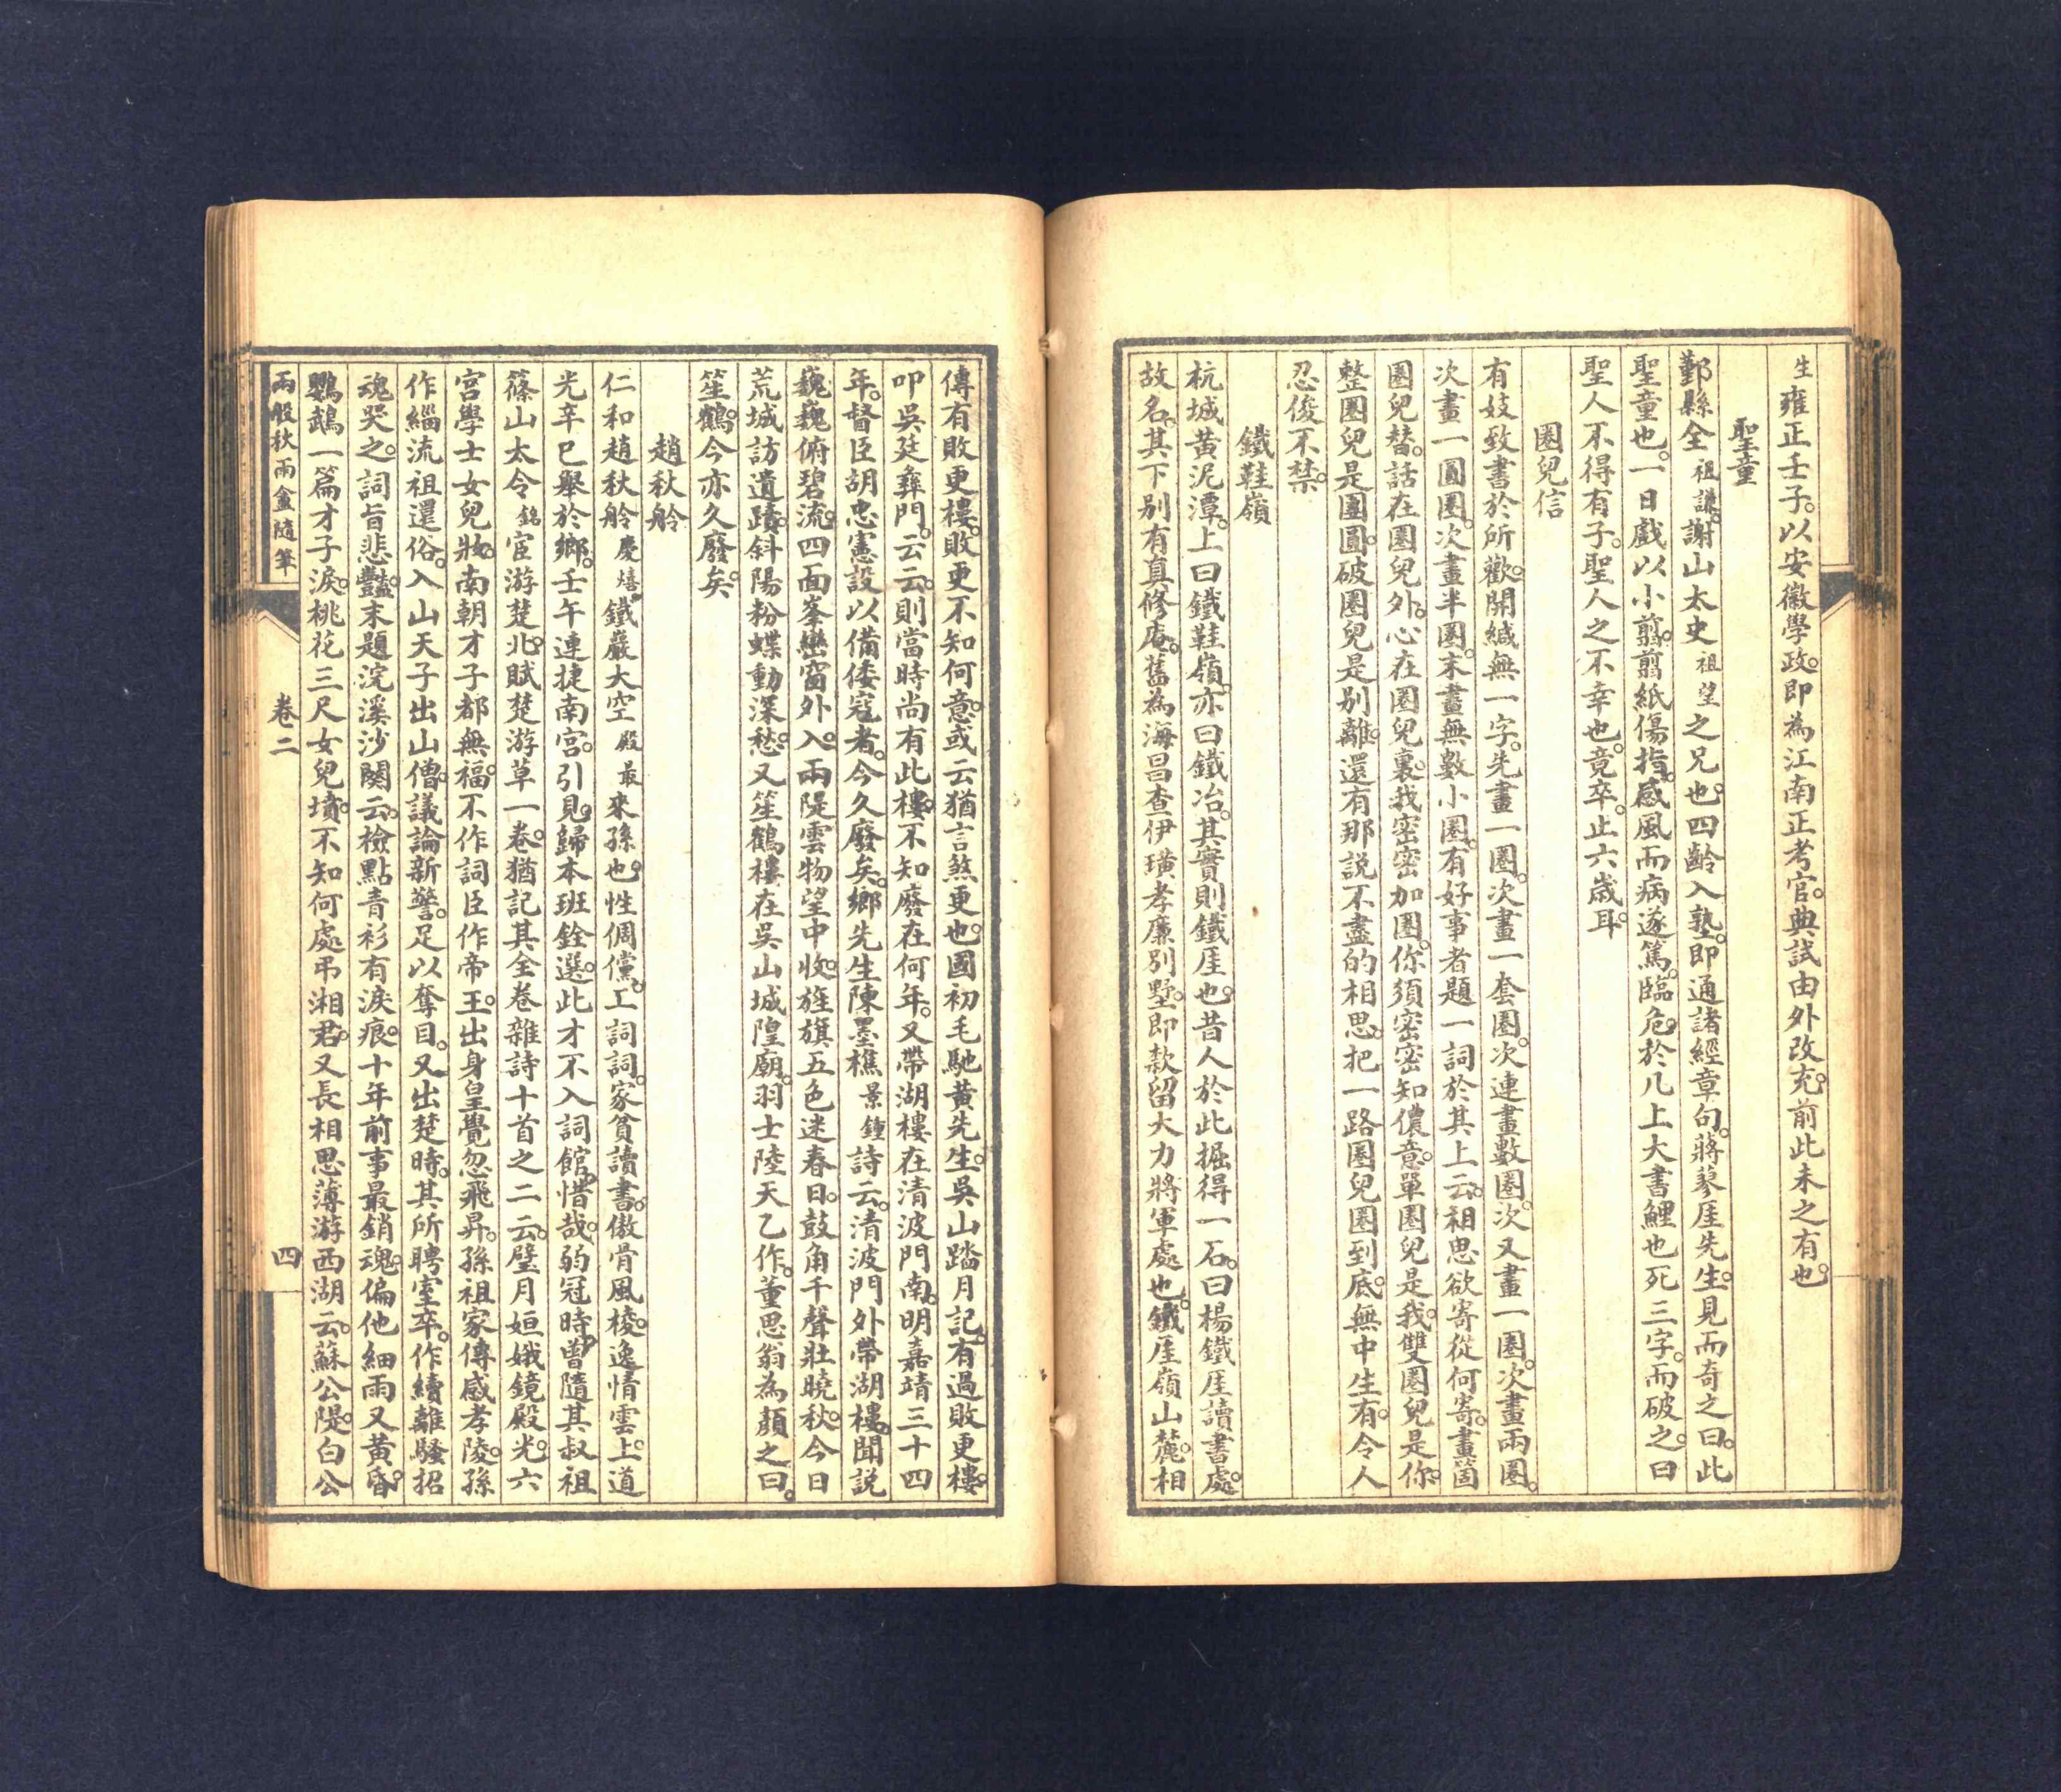 生雍正壬子。以安徽學政。即為江南正考官。典試由外改充。前此未之有也。
聖童
鄞縣全祖謙。謝山太史祖望之兄也。四齡入塾。即通諸經章句。蔣蓼厓先生。見而奇之曰。此
聖童也。一日戲以小翦。翦紙傷指。感風而病遂篤。臨危。於几上大書鯉也死三字。而破之。曰
聖人不得有子。聖人之不幸也。竟卒。止六歲耳。
圈兒信
有妓致書於所歡。開緘無一字。先畫一圈。次畫一套圈。次連畫數圈。次又畫一圈。次畫兩圈。
次畫一圓圈。次畫半圈。末畫無數小圈。有好事者題一詞於其上云。相思欲寄從何寄。畫箇
圈兒替。話在圈兒外。心在圈兒裏。我密密加圈。你須密密知儂意。單圈兒是我。雙圈兒是你。
整圈兒是團圓。破圈兒是別離。還有那說不盡的相思。把一路圈兒圈到底。無中生有。令人
忍俊不禁。
鐵鞋嶺
杭城黃泥潭。上曰鐵鞋嶺。亦曰鐵冶。其實則鐵厓也。昔人於此掘得一石。曰楊鐵厓讀書處。
故名。其下別有真修庵。舊為海昌查伊璜孝廉別墅。即款留大力將軍處也。鐵厓嶺山麓。相
傳有敗更樓。敗更不知何意。或云猶言煞更也。國初毛馳黃先生。吳山踏月記。有過敗更樓。
叩吳廷彝門。云云。則當時尚有此樓。不知廢在何年。又帶湖樓在清波門南。明嘉靖三十四
年。督臣胡忠憲設以備倭寇者。今久廢矣。鄉先生陳墨樵景鐘詩云。清波門外帶湖樓。聞說
巍巍俯碧流。四面峯巒窗外入。兩隄雲物望中收。旌旗五色迷春日。鼓角千聲壯曉秋。今日
荒城訪遺蹟。斜陽粉蝶動深愁。又笙鶴樓在吳山城隍廟。羽士陸天乙作。董思翁為顏之曰。
笙鶴。今亦久廢矣。
趙秋舲
仁和趙秋舲慶熺。鐵巖大空殿最來孫也。性倜儻。工詞詞。家貧讀書。傲骨風棱。逸情雲上。道
光辛巳舉於鄉。壬午連捷南宮。引見。歸本班銓選。此才不入詞館。惜哉。弱冠時。曾隨其叔祖
篠山太令銘宦游楚北。賦楚游草一卷。猶記其全卷雜詩十首之二云。璧月姮娥鏡殿光。六
宮學士女兒妝。南朝才子都無福。不作詞臣作帝王。出身皇覺忽飛昇。孫祖家傳感孝陵。孫
作緇流祖還俗。入山天子出山僧。議論新警。足以奪目。又出楚時。其所聘室卒。作續離騷招
魂哭之。詞旨悲豔。末題浣溪沙闋云。檢點青衫有淚痕。十年前事最銷魂。偏他細雨又黃昏。
鸚鵡一篇才子淚。桃花三尺女兒墳。不知何處弔湘君。又長相思薄游西湖云。蘇公隄。白公
兩般秋雨盦隨筆
卷二
四